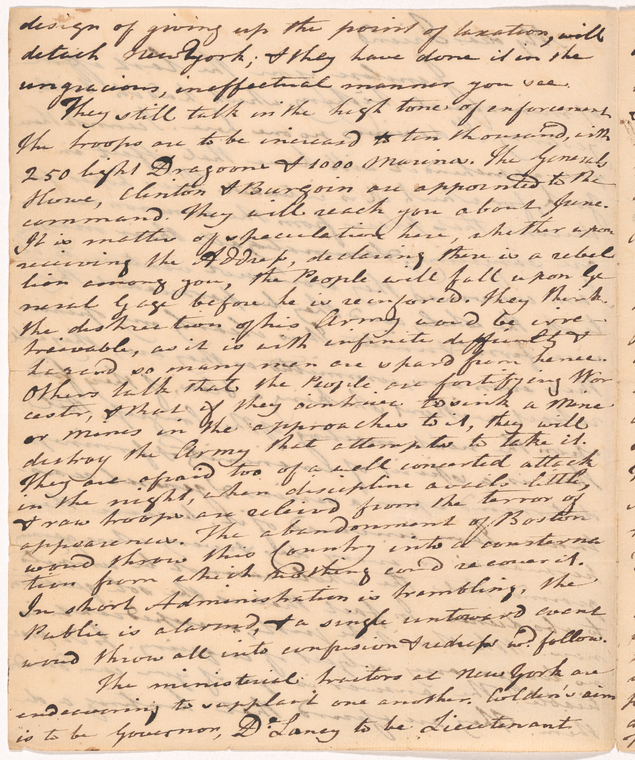 design of giving up the point of taxation, will
detach New York; & they have done it in the
ungracious, ineffectual manner you see.
They still talk in the high tone of enforcement
The troops are to be increasd to ten thousand, with
250 light Dragoons & 1000 Marines. The Generals
Howe, Clinton & Burgoin are appointed to the
command They will reach you about June.
It is matter of speculation here, whether upon
recieving the Address, declaring there is a rebel
lion among you, the People will fall upon Ge
neral Gage before he is reenforced. They think
the destruction of his Army woud be irre
trievable, as it is with infinite difficulty &
hazard so many men are spard from hence.
Others talk that the People are fortifying Wor
cester, & that if they contrive to sink a Mine
or mines in the approaches to it, they will
destroy the Army that attempts to take it.
They are afraid too of a well concerted attack
in the night, when discipline avails little,
& raw troops are relievd from the terror of
appearance. The abandonment of Boston
woud throw this Country into a consterna
tion from which nothing coud recover it.
In short Administration is trembling, the
Public is alarmd, & a single untoward event
woud throw all into confusion & redress wd. follow.
The ministerial traitors at New York are
endeavoring to supplant one another. Colden's aim
is to be Governor, De Lancy to be Lieutenant